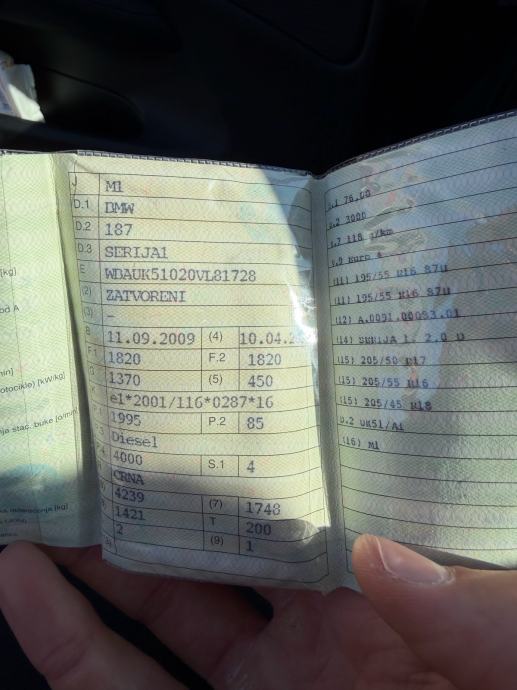 [kg]
od A
min]
otocikle) [kW/kg]
nja stac. buke [o/min]
J M1
D.1 BMW
D.2 187
D.3 SERIJA1
E WDAUK51020VL81728
(2) ZATVORENI
(3) -
B 11.09.2009 (4) 10.04.2
F.1 1820 F.2 1820
G 1370 (5) 450
e1*2001/116*0287*16
1995 P.2 85
Diesel
4000 S.1 4
CRNA
4239 (7) 1748
1421 T 200
2 (9) 1
76,00
3000
.7 118 g/km
.9 Euro 4
(11) 195/55 R16 87H
(11) 195/55 R16 87H
(12)
(14) SERIJA 1. 2.0 D
(15) 205/50 R17
(15) 205/55 R16
(15) 205/45 R18
D.2 UK51/A1
(16) M1